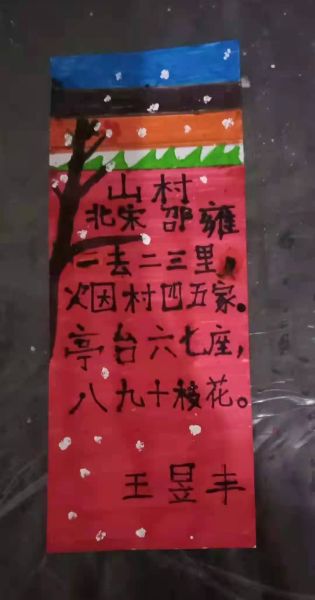 山村
北宋 邵雍
一去二三里,
烟村四五家。
亭台六七座,
八九十枝花。
王昱丰